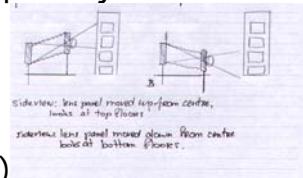 B
sideview: lens panel moved up from centre,
looks at top floors
sideview lens panel moved down from centre
looks at bottom floors.
)